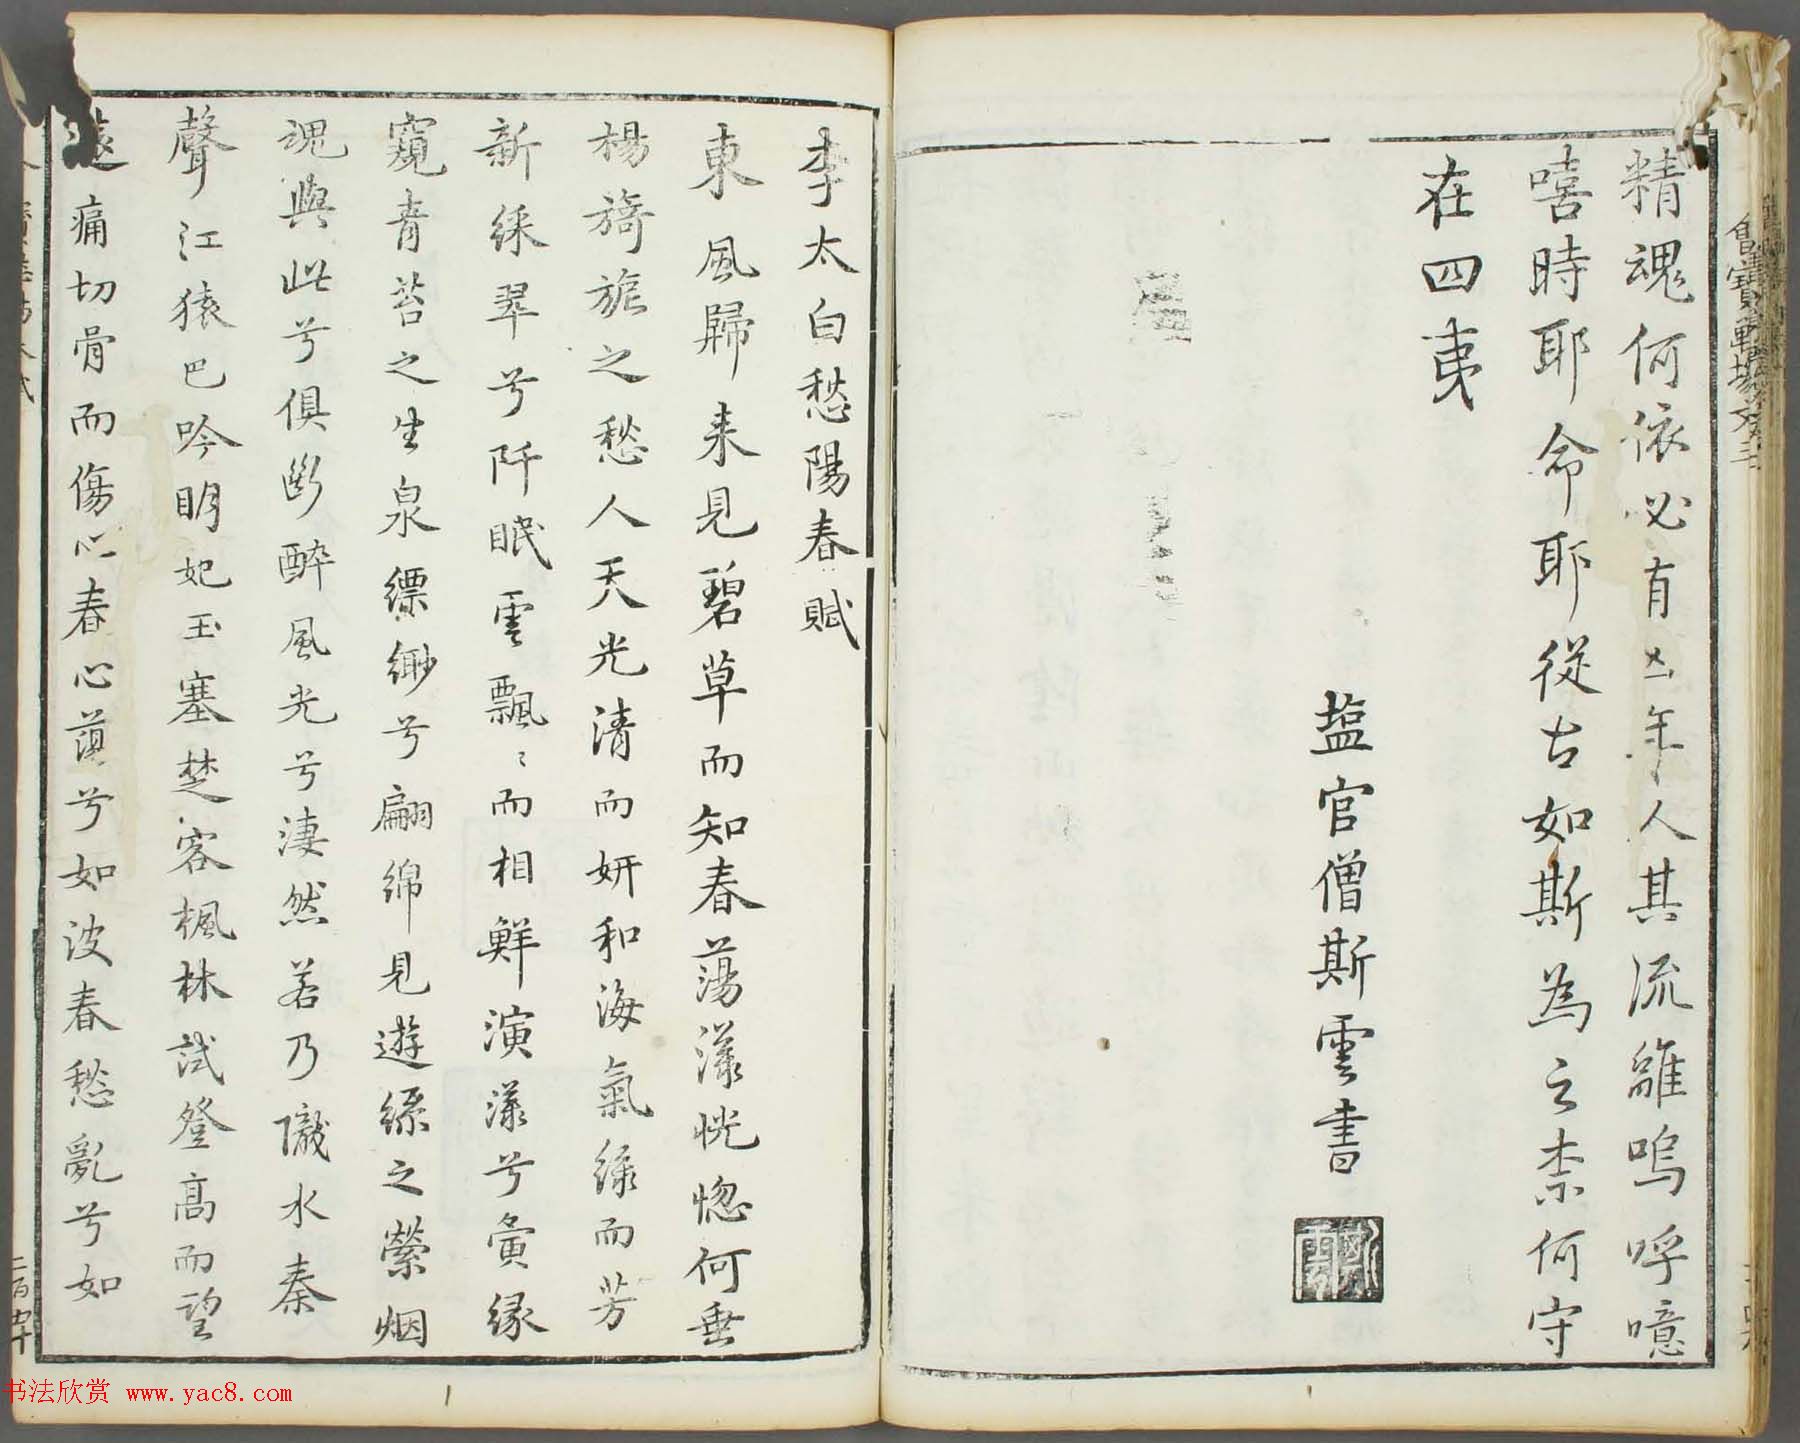 精魂何依必有凶年人其流離嗚呼噫
嘻時耶命耶從古如斯為之柰何守
在四夷
盐官僧斯雲書
斯雲
李太白愁陽春賦
東風歸来見碧草而知春蕩漾恍惚何垂
楊旖旎之愁人天光清而妍和海氣緑而芳
新綵翠兮阡眠雲飄〻而相鮮演漾兮夤縁
窺青苔之生泉縹緲兮翩綿見遊絲之縈烟
魂與此兮俱断醉風光兮淒然若乃隴水秦
聲江猿巴吟明妃玉塞楚客楓林試登高而望
遠痛切骨而傷心春心蕩兮如波春愁亂兮如
书法欣赏 www.yac8.com